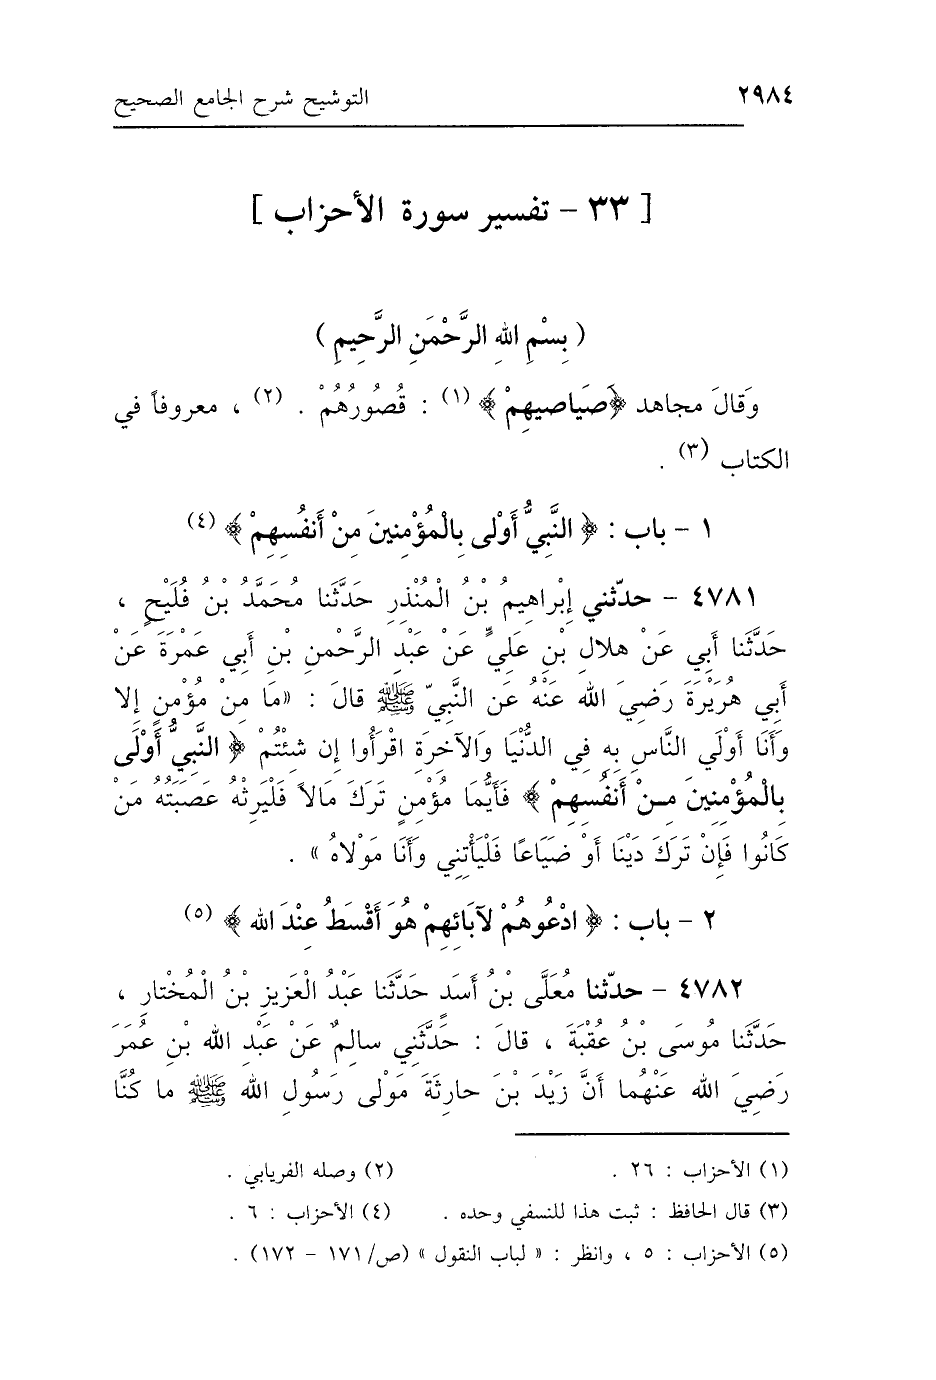 ٢٩٨٤ التوشيح شرح الجامع الصحيح
[ ٣٣ - تفسير سورة الأحزاب ]
( بِسْمِ اللهِ الرَّحْمَنِ الرَّحِيمِ )
وَقالَ مجاهد ﴿صَيَاصيهِمْ﴾ (١) : قُصُورُهُمْ . (٢) ، معروفاً في
الكتاب (٣) .
١ - باب : ﴿ النَّبِيُّ أَوْلى بِالْمُؤْمِنينَ مِنْ أَنفُسِهِمْ ﴾ (٤)
٤٧٨١ - حدّثني إِبْراهِيمُ بْنُ الْمُنْذِرِ حَدَّثَنا مُحَمَّدُ بْنُ فُلَيْحٍ ،
حَدَّثَنا أَبِي عَنْ هلالِ بْنِ عَلِيٍّ عَنْ عَبْدِ الرَّحْمنِ بْنِ أَبي عَمْرَةَ عَنْ
أَبِي هُرَيْرَةَ رَضِيَ الله عَنْهُ عَن النَّبِيّ ﷺ قالَ : «مَا مِنْ مُؤْمنٍ إِلا
وأَنَا أَوْلَي النَّاسِ بِهِ فِي الدُّنْيَا وَالآخِرَةِ اقْرَأُوا إِن شئْتُمْ ﴿ النَّبِيُّ أَوْلَى
بِالْمُؤْمِنِينَ مِـنْ أَنفُسِهِمْ ﴾ فَأَيُّمَا مؤْمنٍ تَرَكَ مَالاً فَلْيَرِثْهُ عَصَبَتُهُ مَنْ
كَانُوا فَإِنْ تَرَكَ دَيْنًا أَوْ ضَيَاعًا فَلْيَأْتِنِي وأَنَا مَوْلاهُ » .
٢ - باب : ﴿ ادْعُوهُمْ لآبَائِهِمْ هُوَ أَقْسَطُ عِنْدَ الله ﴾ (٥)
٤٧٨٢ - حدّثنا مُعَلَّى بْنُ أَسَدٍ حَدَّثَنا عَبْدُ الْعَزِيزِ بْنُ الْمُخْتارِ ،
حَدَّثَنا مُوسَى بْنُ عُقْبَةَ ، قالَ : حَدَّثَنِي سالِمٌ عَنْ عَبْدِ الله بْنِ عُمَرَ
رَضِيَ الله عَنْهُما أَنَّ زَيْدَ بْنَ حارِثَةَ مَوْلى رَسُولِ الله ﷺ ما كُنَّا
(١) الأحزاب : ٢٦ . (٢) وصله الفريابي .
(٣) قال الحافظ : ثبت هذا للنسفي وحده . (٤) الأحزاب : ٦ .
(٥) الأحزاب : ٥ ، وانظر : « لباب النقول » (ص/١٧١ - ١٧٢) .